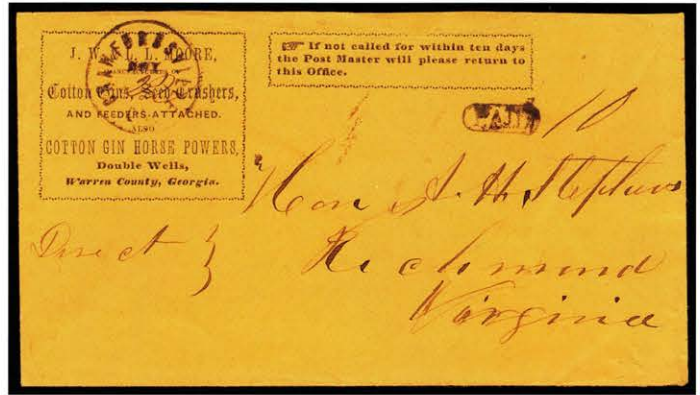 J. W. & L. L. MOORE,
Cotton Gins, Seed Crushers,
AND FEEDERS ATTACHED.
ALSO
COTTON GIN HORSE POWERS,
Double Wells,
Warren County, Georgia.
☞ If not called for within ten days
the Post Master will please return to
this Office.
CRAWFORDSVILLE
OCT
PAID
10
Hon A. H. Stephens
Richmond
Virginia
Direct }